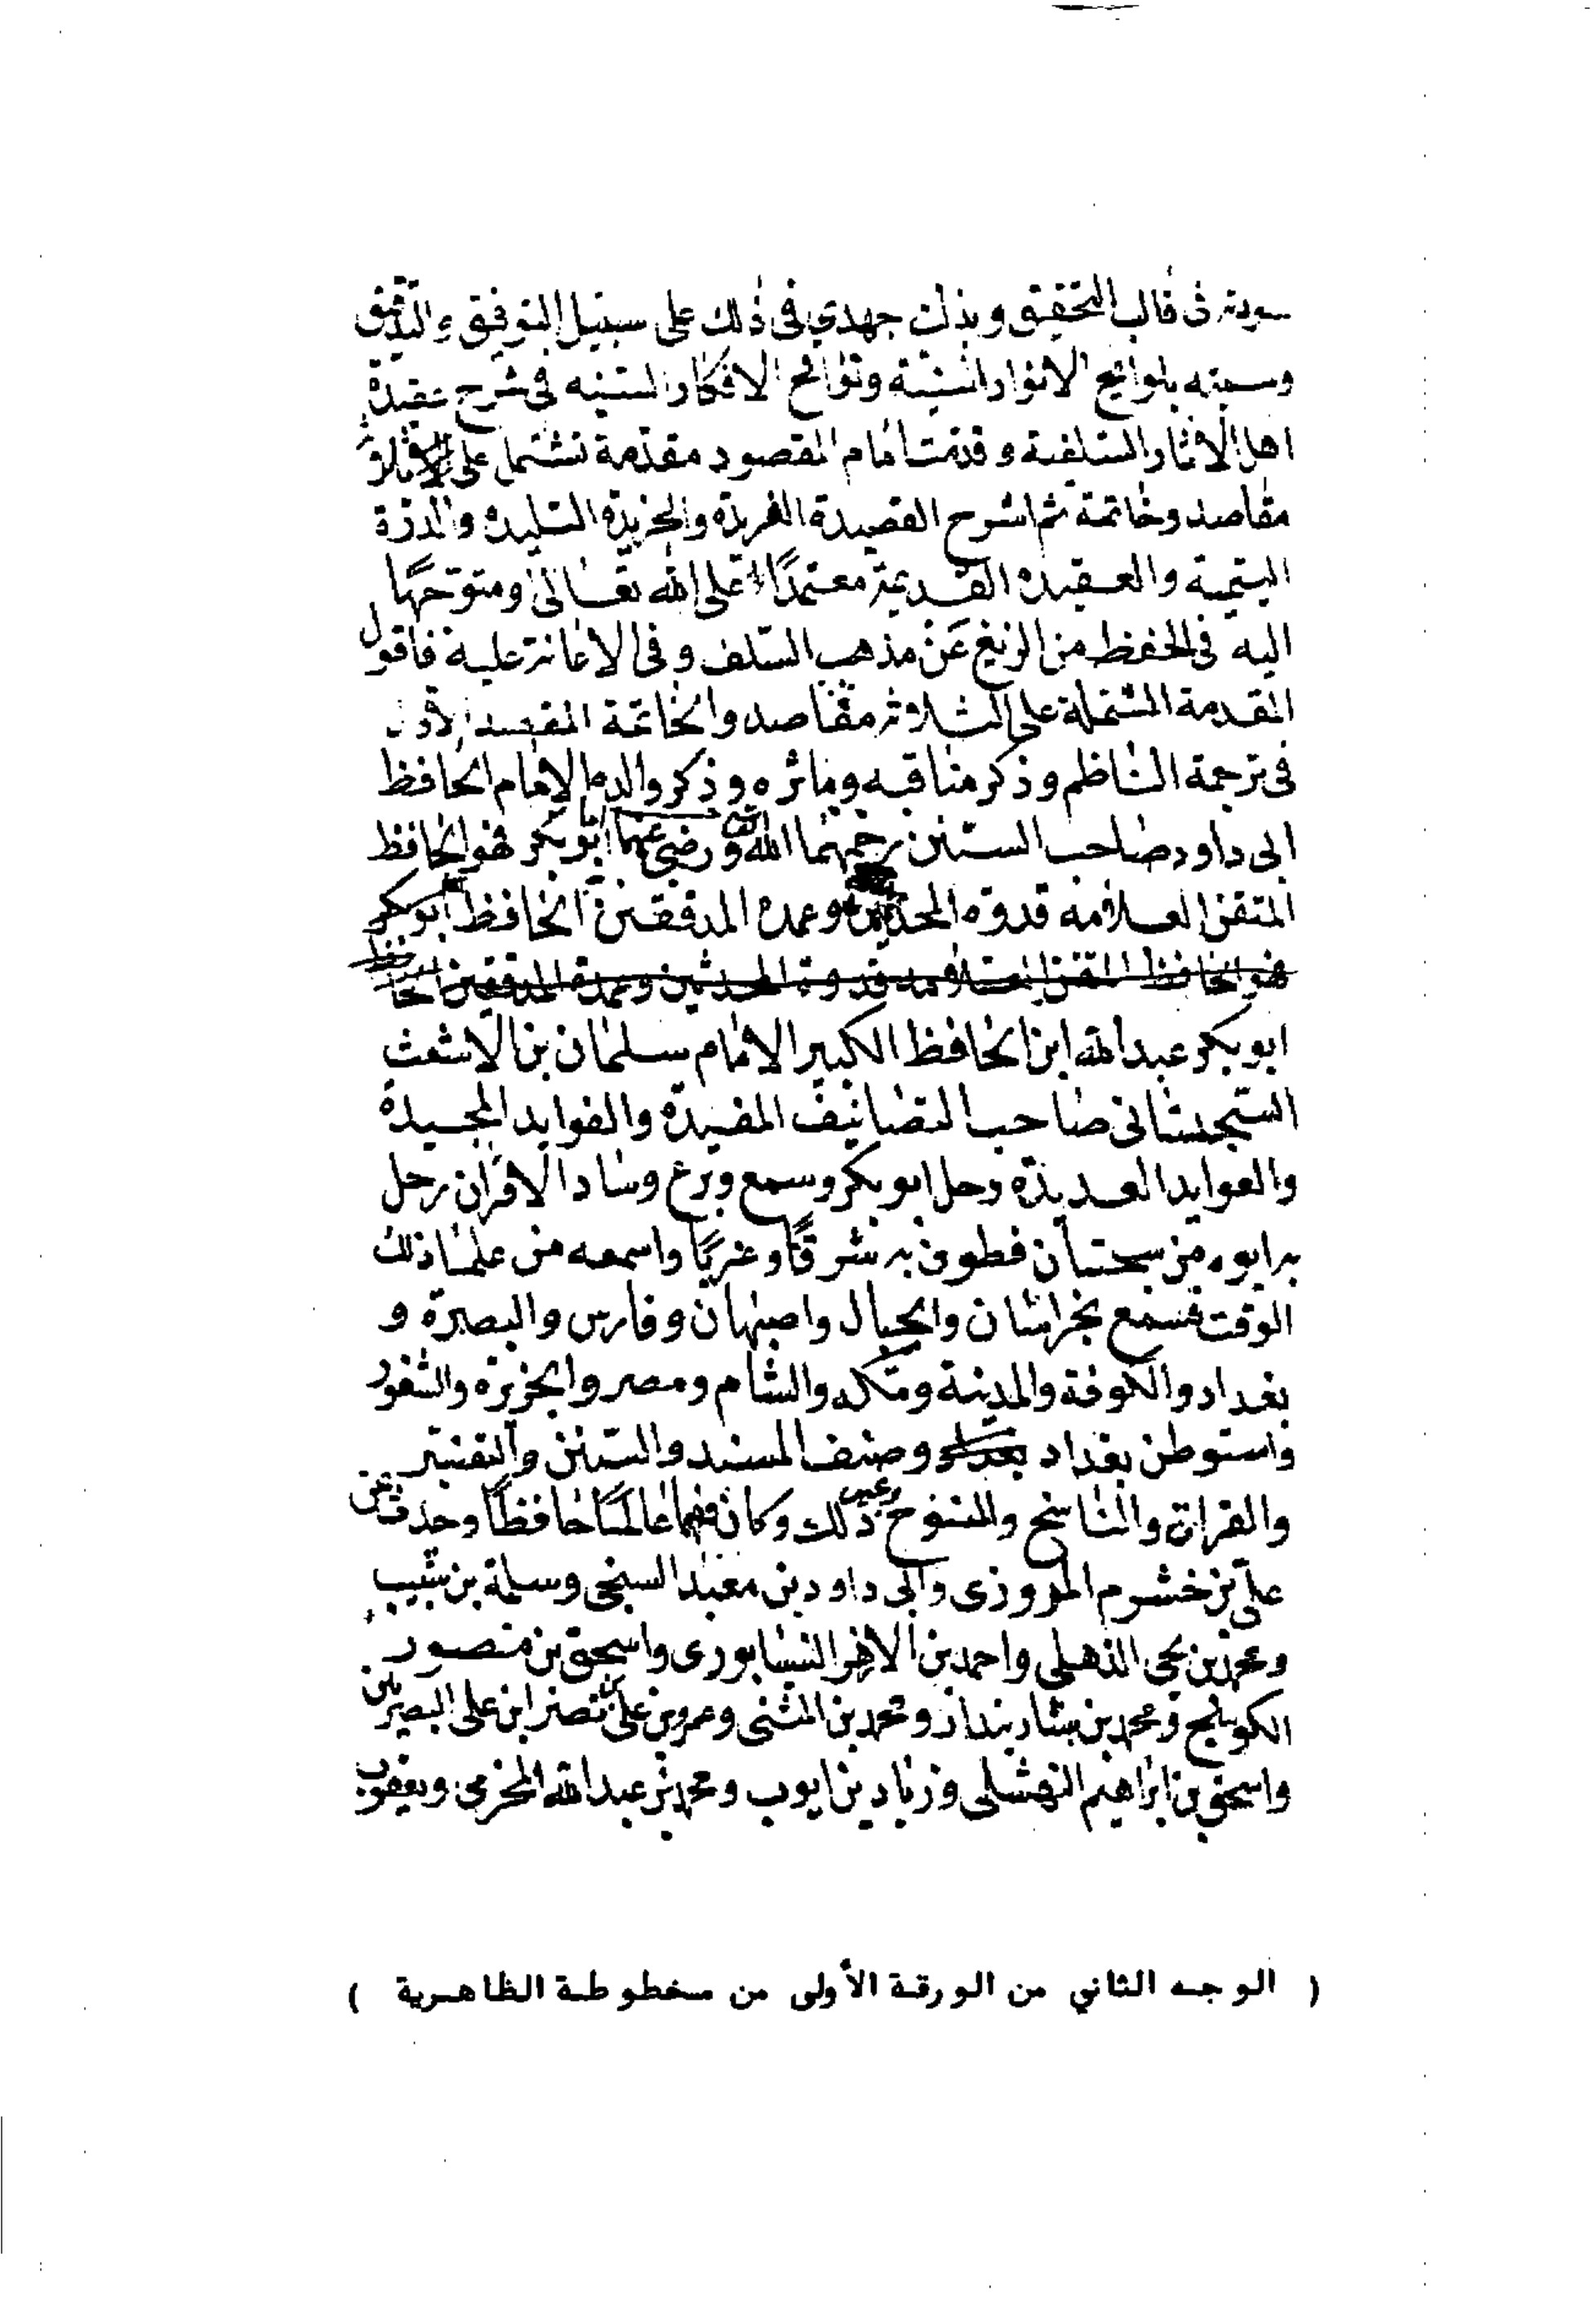 في قالب التحقيق وبذلت جهدي في ذلك على سبيل التوفيق والتدقيق
وسميته بلوائح الانوار السنية ولوائح الافكار السنيه في شرح عقيدة
اهل الاثار السلفية وقدمت امام المقصود مقدمة تشتمل على
مقاصد وخاتمة ثم اشرح القصيدة الفريدة والخريدة التليدة والدرة
اليتيمة والعقيده القديمة معتمدًا على الله تعالى ومتوجهًا
اليه في الحفظ من الزيغ عن مذهب السلف وفي الاعانة عليه فاقول
المقدمة المشتملة على الثلاثة مقاصد والخاتمة المقصد الأول
في ترجمة الناظم وذكر مناقبه ومآثره وذكر والده الامام الحافظ
ابي داود صاحب السنن رحمهما الله ورضي عنهما ابو بكر فهو الحافظ
المتقن العلامة قدوة المحدثين وعمدة المدققين الحافظ ابوبكر
فهو الحافظ المتقن العلامة قدوة المحدثين وعمدة المدققين الحافظ
ابو بكر عبد الله ابن الحافظ الكبير الامام سلمان بن الاشعث
السجستاني صاحب التصانيف المفيدة والفوايد المجيدة
والعوايد العديدة رحل ابو بكر وسمع وبرع وساد الاقران رحل
به ابوه من سجستان فطوف به شرقًا وغربًا واسمعه من علما ذلك
الوقت فسمع بخراسان والجبال واصبهان وفارس والبصرة و
بغداد والكوفة والمدينة ومكه والشام ومصر والجزيره والثغور
واستوطن بغداد وصنف المسند والسنن والتفسير
والقران والناسخ والمنسوخ وغير ذلك وكان فهما عالمًا حافظًا وحدث عن
علي بن خشرم المروزي وابي داود بن معبد السنجي وسلمة بن شبيب
ومحمد بن يحي الذهلي واحمد بن الازهر النيسابوري واسحق بن منصور
الكوسج ومحمد بن بشار بندار ومحمد بن المثنى وعمرو بن علي نصر ابن علي البصريين
واسحق بن ابراهيم النهشلي وزياد بن ايوب ومحمد بن عبد الله المخرمي ويعقوب
( الوجه الثاني من الورقة الأولى من مخطوطة الظاهرية )